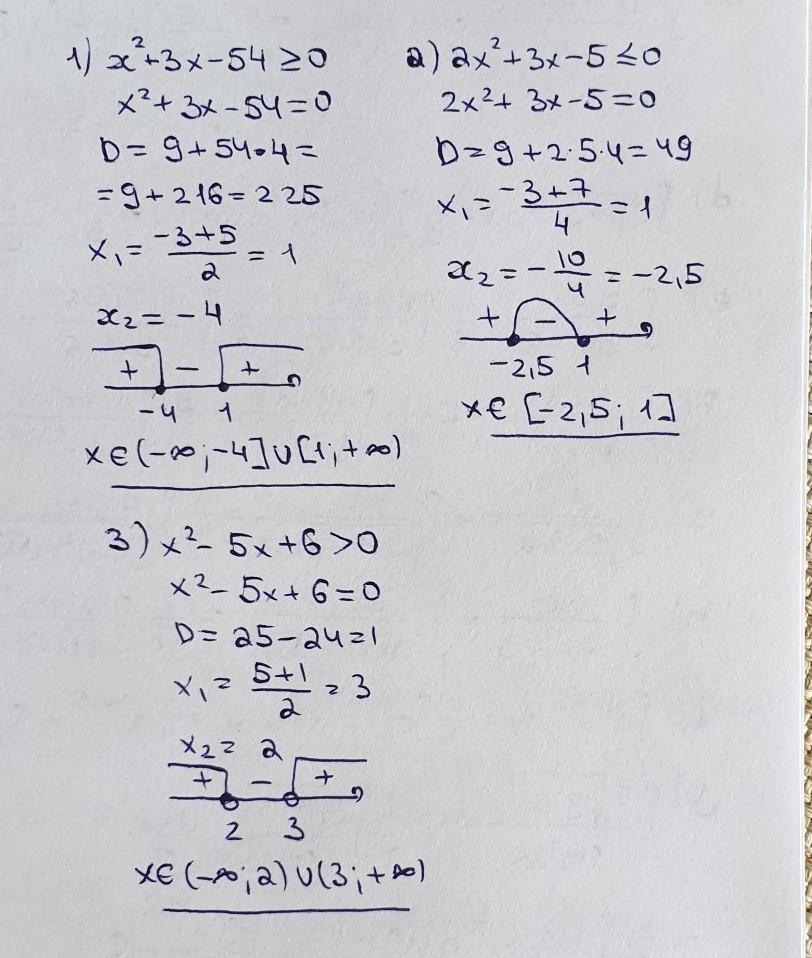 1) x²+3x-54≥0
x²+3x-54=0
D=9+54•4=
=9+216=225
x₁=(-3+5)/2=1
x₂=-4
+ - +
-4 1
x∈(-∞;-4]∪[1;+∞)
2) 2x²+3x-5≤0
2x²+3x-5=0
D=9+2·5·4=49
x₁=(-3+7)/4=1
x₂=-10/4=-2,5
+ - +
-2,5 1
x∈[-2,5;1]
3) x²-5x+6>0
x²-5x+6=0
D=25-24=1
x₁=(5+1)/2=3
x₂=2
+ - +
2 3
x∈(-∞;2)∪(3;+∞)